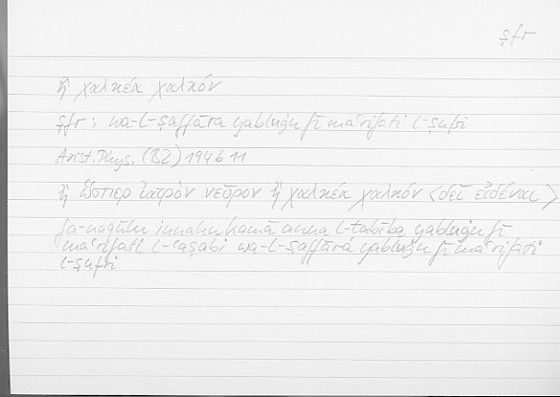 ṣfr
ἢ χαλκέα χαλκόν
ṣfr; wa-l-ṣaffāra yabluġu fī maʿrifati l-ṣufri
Arist. Phys. (B2) 194b11
ἢ ὥσπερ ἰατρὸν νεῦρον ἢ χαλκέα χαλκόν <δεῖ εἰδέναι>
fa-naqūlu innahu kamā anna l-ṭabība yabluġu fī
maʿrifati l-ʿaṣabi wa-l-ṣaffāra yabluġu fī maʿrifati
l-ṣufri